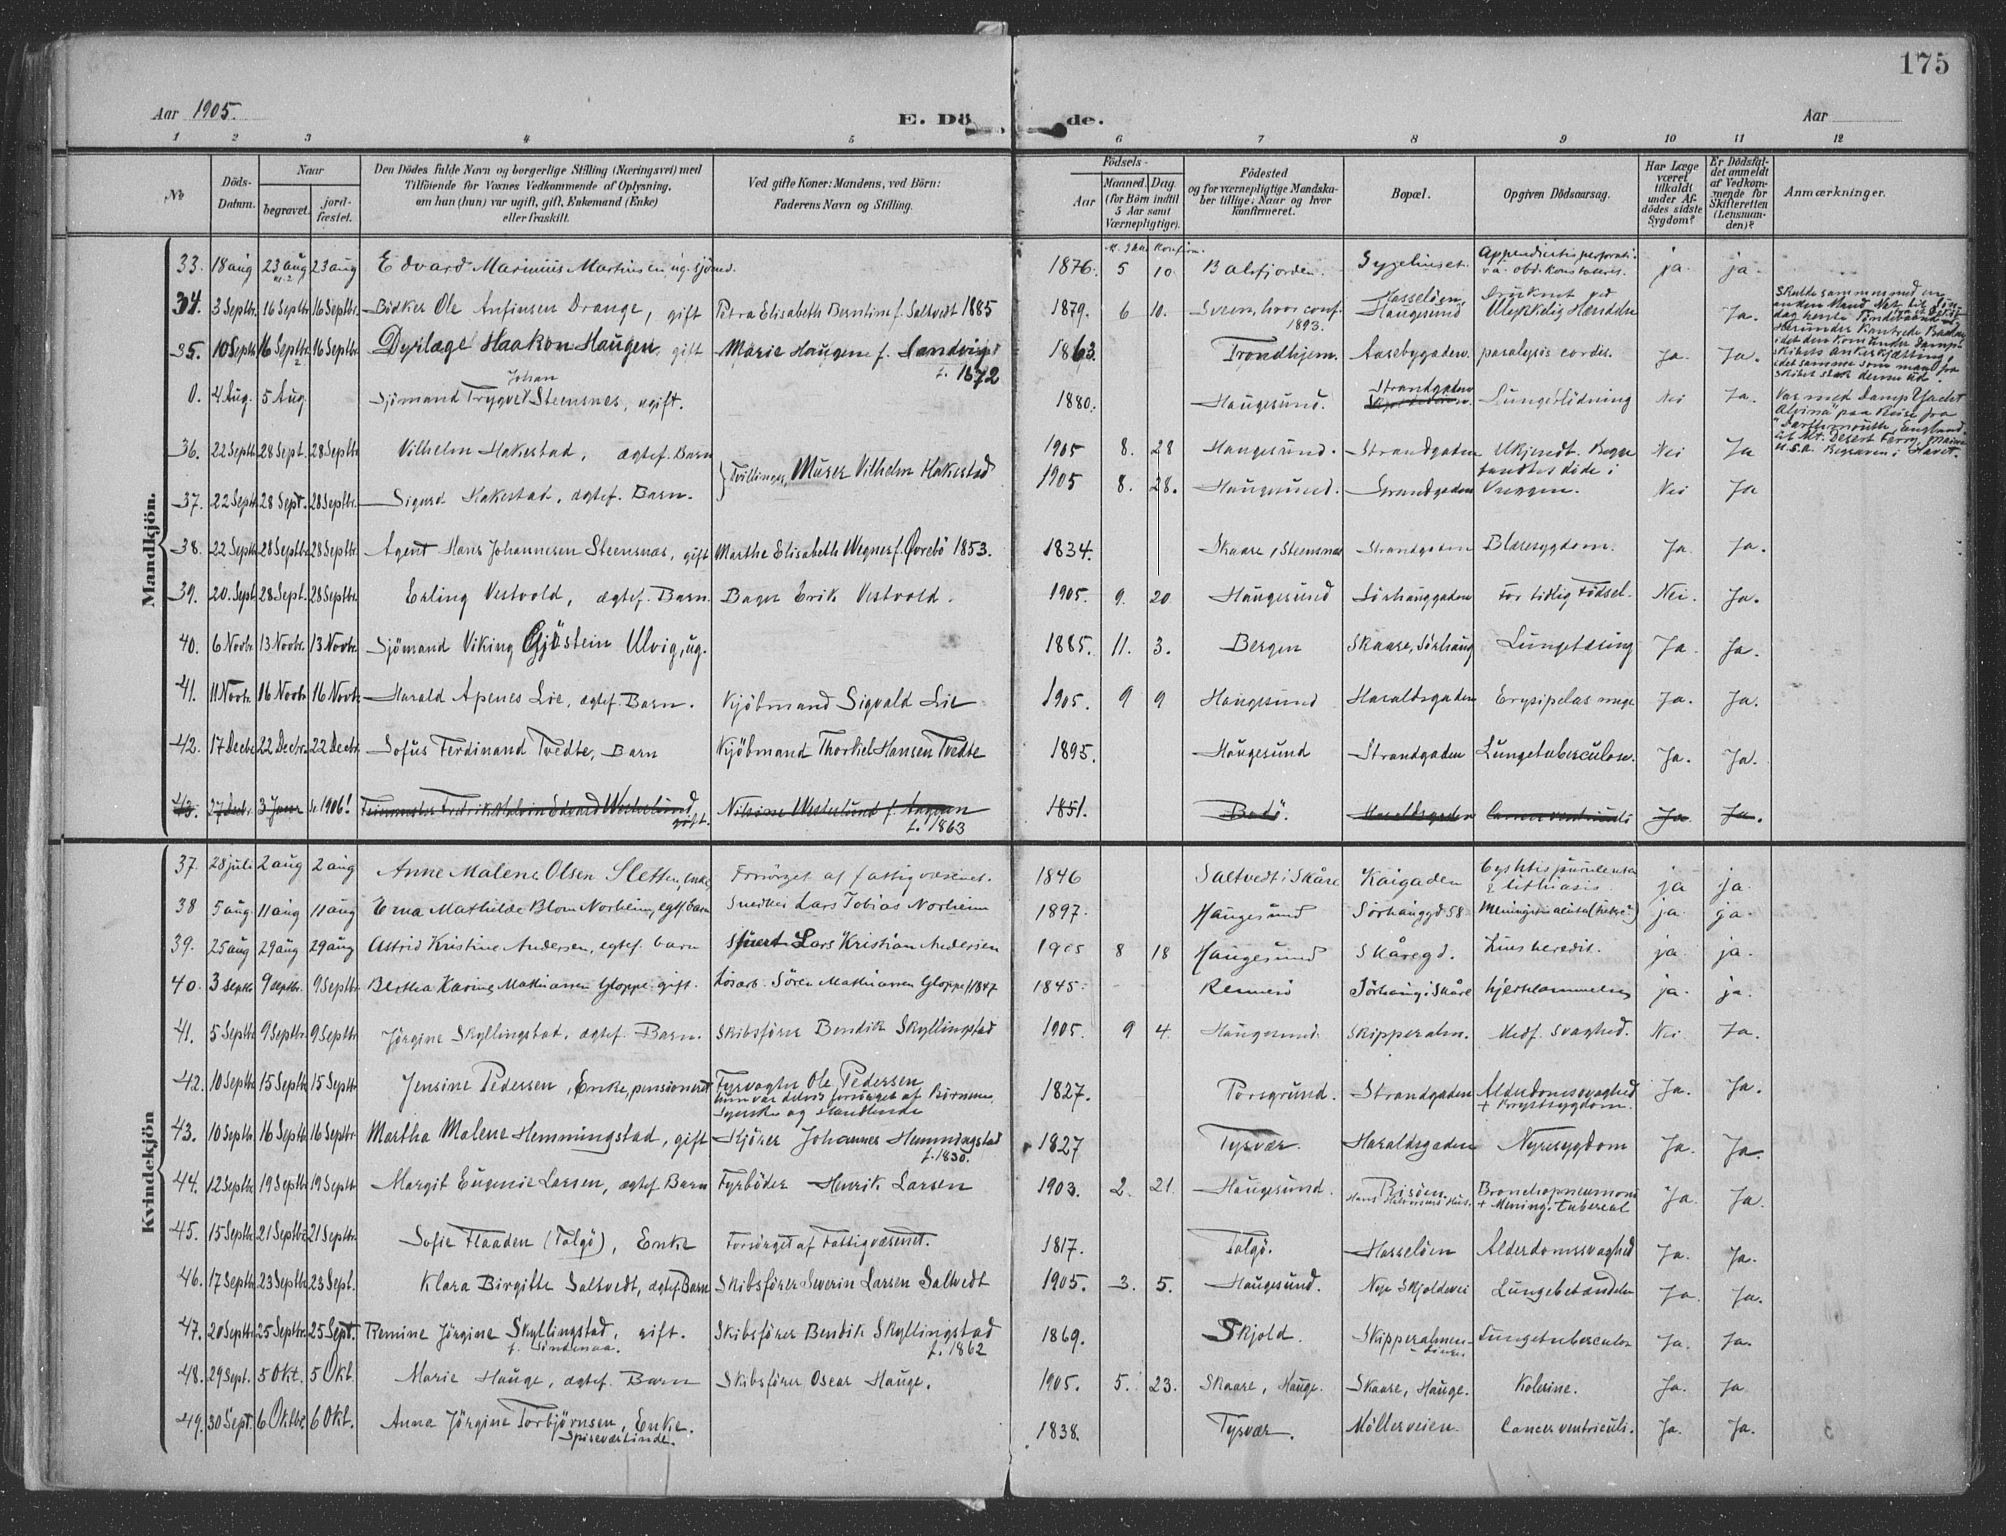 175
Aar 1905.
E. Dö de.
Aar
1 2 3 4 5 6 7 8 9 10 11 12
No
Döds-Datum.
Naar
begravet.
jord-fæstet.
Den Dödes fulde Navn og borgerlige Stilling (Næringsvei) med
Tilföiende for Voxnes Vedkommende af Oplysning,
om han (hun) var ugift, gift, Enkemand (Enke)
eller fraskilt.
Ved gifte Koner: Mandens, ved Börn:
Faderens Navn og Stilling.
Födsels-
Aar
Maaned. Dag.
(for Börn indtil
5 Aar samt
Værnepligtige).
Födested
og for værnepligtige Mandska-
ber tillige: Naar og hvor
konfirmeret.
Bopæl.
Opgiven Dödsaarsag.
Har Læge
været
tilkaldt
under Af-
dödes sidste
Sygdom?
Er Dödsfal-
det anmeldt
af Vedkom-
mende for
Skifteretten
(Lensman-
den)?
Anmærkninger.
Mandkjön.
33. 18 aug 23 aug 23 aug Edvard Marinius Martinsen ug. sjømd. 1876. 5 10. Balsfjorden. Sygehuset. Appendicitis perforativa ja. ja.
34. 3 Septbr. 16 Septbr. 16 Septbr. Bödker Ole Anfinsen Drange, gift Petra Elisabeth Berntine f. Saltvedt 1885 1879. 6 10. Sveen, hvor conf. 1893. Hasselöen, Haugesund Druknet ved Ulykkelig Hændelse Ja.
35. 10 Septbr. 16 Septbr. 16 Septbr. Dyrlæge Haakon Haugen, gift Marie Haugen f. Sandvig f. 1872 1863. Trondhjem. Aasebygaden. paralysis cordis. Ja. Ja.
0. 4 Aug. 5 Aug. Sjömand Trygve Johan Steensnes, ugift. 1880. Haugesund. Strandgaden Lungeblödning Nei Ja. Var med Damp Yacht
"Alvina" paa Reise fra
"Darthmouth, England
til Mt. Desert Ferry, Maine
U.S.A. Begraven i Havet.
36. 22 Septb. 28 Sept. 28 Septb. Vilhelm Hakestad, ægtef. Barn Tvillinger, Murer Vilhelm Hakestad 1905 8. 28 Haugesund. Strandgaden Ukjendt. Begge fandtes döde i Vuggen. Nei Ja
37. 22 Sept. 28 Sept. 28 Septbr. Sigurd Hakestad, ægtef. Barn. 1905 8. 28. Haugesund. Strandgaden Nei Ja
38. 22 Septb. 28 Septbr. 28 Septbr. Agent Hans Johannesen Steensnæs, gift Marthe Elisabeth Wegner f. Övrebö 1853. 1834. Skaare, Steensnæs Strandgaden Blæresygdom. Ja. Ja.
39. 20. Sept. 28 Sept. 28 Septbr. Erling Vestvold, ægtef. Barn. Bager Erik Vestvold. 1905. 9. 20. Haugesund Sörhauggaden For tidlig Födsel. Nei. Ja.
40. 6 Novbr. 13 Novbr. 13 Novbr. Sjömand Viking Gjöstein Ulvig, ug. 1885. 11. 3. Bergen Skaare, Sörhaug Lungetæring Ja. Ja.
41. 11 Novbr. 16 Novbr. 16 Novbr. Harald Apenes Lie, ægtef. Barn. Kjöbmand Sigvald Lie 1905. 9 9 Haugesund Haraldsgaden Erysipelas Ja. Ja.
42. 17 Decbr. 22 Decbr. 22 Decbr. Sofus Ferdinand Tvedte, Barn Kjöbmand Thorkel Hansen Tvedte 1895. Haugesund Strandgaden Lungetuberculose. Ja. Ja.
43. 27 Decbr. 3 Janr 1906! Fredrik Edvard Westerlund gift. Westerlund f. f. 1863 1851. Bodö. Haraldsgaden Cancer ventriculi Ja. Ja.
Kvindekjön
37. 28 juli 2 aug 2 aug Anne Malene Olsen Sletten, enke Forsörget af fattigvæsenet. 1846 Saltvedt i Skåre Kaigaden Cystitis purulenta & lithiasis. ja ja.
38 5 aug. 11 aug 11 aug Erna Mathilde Blom Norheim, egtf. barn Snedker Lars Tobias Norheim 1897. Haugesund Sörhauggd 58 Meningit. acuta ja. ja.
39. 25 aug 29 aug 29 aug Astrid Kristine Andersen, egtef. barn Lars Kristian Andersen 1905 8 18 Haugesund Skåregd. Lues heredit. ja. ja.
40. 3 Septbr 9 septbr. 9 Septbr. Bertha Karine Mathiassen Gloppe. gift. Lösarb. Sören Mathiassen Gloppe f 1847 1845. Rennesö Sörhaug i Skåre hjertelammelse ja. ja.
41. 5 Septbr. 9 Septbr. 9 Septbr. Jörgine Skyllingstad, ægtef. Barn. Skibsförer Bendik Skyllingstad 1905. 9 4. Haugesund. Skipperalm. Medf. svaghed. Nei Ja.
42. 10 Septbr. 15 Septbr. 15 Septbr. Jensine Pedersen, Enke, pensioneret Fyrvogter Ole Pedersen
hun var delvis forsörget af Börnene,
og Handlende 1827. Porsgrund. Strandgaden Alderdomssvaghed + Brystsygdom. Ja. Ja.
43. 10 Septbr. 16 Septbr. 16 Septbr. Martha Malene Hemmingstad, gift Johannes Hemmingstad f. 1830. 1827 Tysvær. Haraldsgaden Nyresygdom Ja. Ja.
44. 12 Septbr. 19 Septbr. 19 Septbr. Margit Eugenie Larsen, ægtef. Barn Fyrböder Henrik Larsen 1903. 2. 21. Haugesund. Risöen Bronchopneumoni + Mening. tubercul Ja. Ja.
45. 15 Septb. 21 Septbr. 21 Septbr. Sofie Flaaden (Talgö), Enke Forsörget af Fattigvæsenet. 1817. Talgö. Hasselöen Alderdomssvaghed Ja. Ja.
46. 17 Septbr. 23 Septbr. 23 Sept. Klara Birgitte Saltvedt, ægtef. Barn Skibsförer Severin Larsen Saltvedt 1905. 3. 5. Haugesund. Nye Skjoldevei Lungebetændelse Ja. Ja.
47. 20 Septbr. 25 Septbr. 25 Sept. Remine Jörgine Skyllingstad, gift.
f. Söndenaa. Skibsförer Bendik Skyllingstad f. 1862 1869. Skjold. Skipperalmen- Lungetuberculose Ja. Ja.
48. 29 Sept. 5 Okt. 5 Okt. Marie Hauge, ægtef. Barn Skibsförer Oscar Hauge. 1905. 5. 23. Skaare, Hauge. Skaare, Hauge. Kolerine. Ja. Ja
49. 30 Sept. 6 Oktbr. 6 Okt. Anna Jörgine Torbjörnsen, Enke.
Spiseværtinde. 1838. Tysvær. Möllerveien. Cancer ventriculi. Ja. Ja.